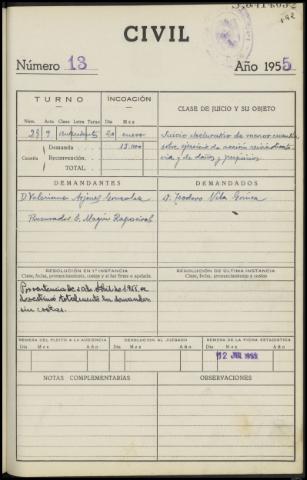 CIVIL
Número 13
Año 1955
TURNO
INCOACIÓN
CLASE DE JUICIO Y SU OBJETO
Núm. Acta Clase Letra Turno Día Mes
29 9 20 enero
Juicio declarativo de menor cuantía
Demanda 15.000
sobre ejercicio de acción reivindicato-
Cuantía Reconvención.
ria y de daños y perjuicios
TOTAL
DEMANDANTES
DEMANDADOS
D. Valeriano González
D. Teodoro Vila Gómez
Procurador D. Magín
RESOLUCIÓN EN 1ª INSTANCIA
Clase, fecha, pronunciamiento, costas y si fué firme o apelada.
RESOLUCIÓN DE ÚLTIMA INSTANCIA
Clase, fecha, pronunciamiento y costas
Por sentencia de Abril de 1955 se
desestimó totalmente la demanda
sin costas.
REMESA DEL PLEITO A LA AUDIENCIA
DEVOLUCIÓN AL JUZGADO
REMESA DE LA FICHA ESTADÍSTICA
Día Mes Año
Día Mes Año
Día Mes Año
12 JUL 1955
NOTAS COMPLEMENTARIAS
OBSERVACIONES